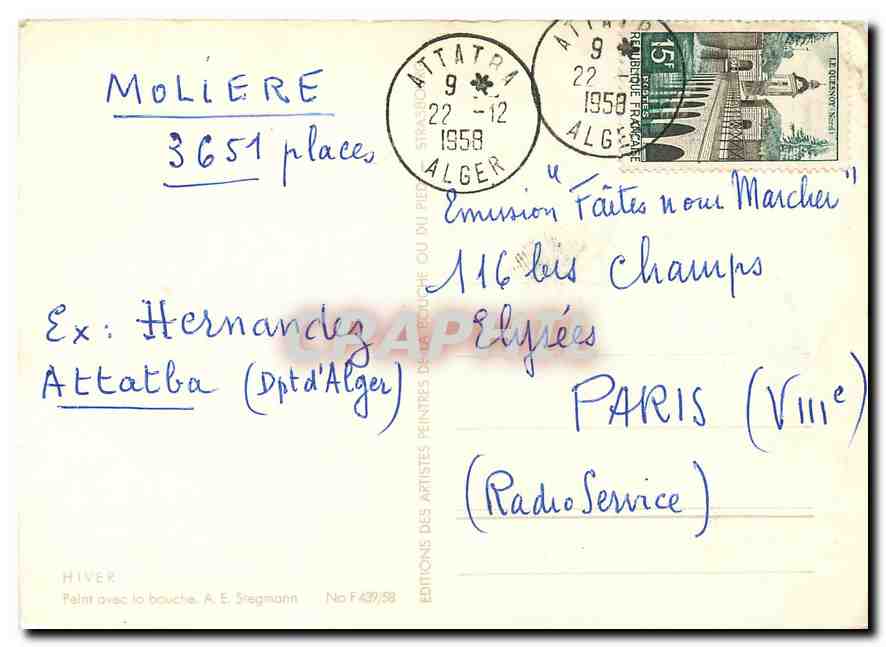 MOLIERE
3651 places
Ex: Hernandez
Attatba (Dpt d'Alger)
HIVER
Peint avec la bouche. A. E. Stegmann No F 439/58
EDITIONS DES ARTISTES PEINTRES DE LA BOUCHE OU DU PIED - STRASBO
ATTATBA
9 *
22 -12
1958
ALGER
ATTATB
9 *
22 -
1958
ALGE
15F
POSTES
REPUBLIQUE FRANÇAISE
LE QUESNOY Nord
Emission "Faîtes nour Marcher"
116 bis Champs
Elysées
PARIS (VIIIe)
(Radio Service)
CRAPHI